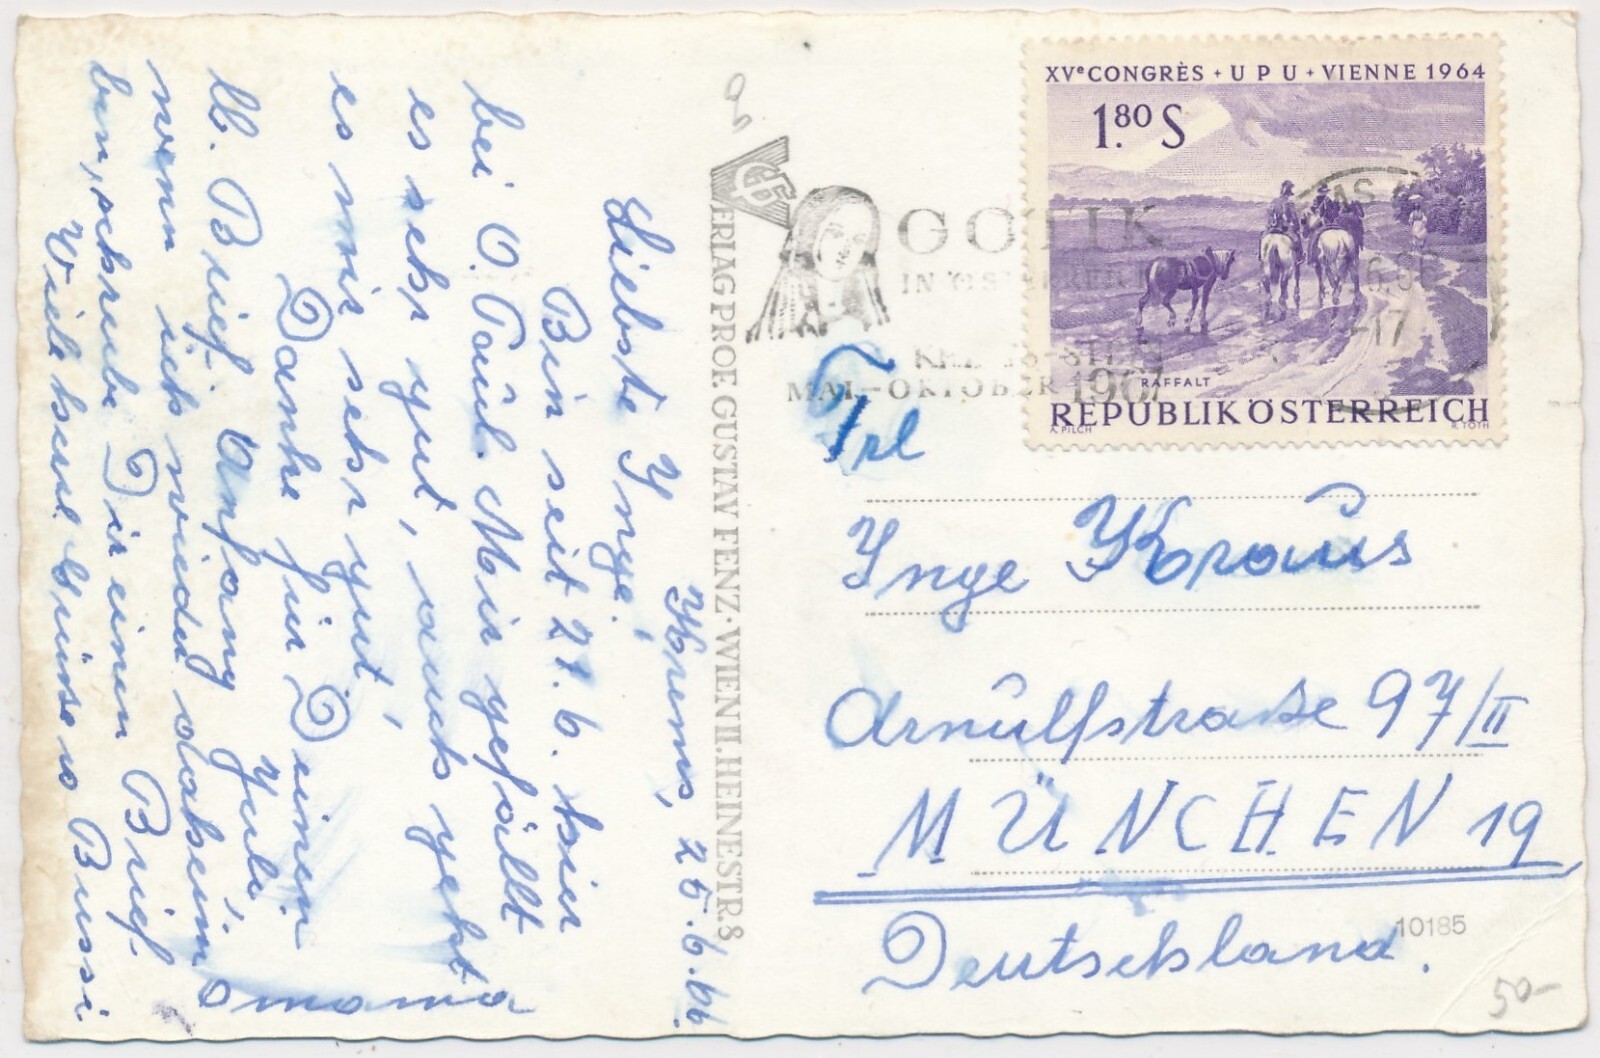 Krems, 25.6.66.
Liebste Inge!
Bin seit 21.6. hier
bei O. Paul. Mir gefällt
es sehr gut, auch geht
es mir sehr gut!
Danke für Deinen
lb. Brief. Anfang Juli,
wenn ich wieder daheim
bin, schreibe Dir einen Brief.
Viele herzl. Grüsse u Bussi
Omama
VERLAG PROF. GUSTAV FENZ·WIEN II. HEINESTR. 8
XVe CONGRÈS + UPU + VIENNE 1964
1.80 S
RAFFALT
REPUBLIK ÖSTERREICH
A. PILCH
R. TOTH
GOTIK
IN ÖSTERREICH
KREMS-STEIN
MAI-OKTOBER 1967
-17
Frl
Inge Kraus
Arnulfstraße 97/II
MÜNCHEN 19
Deutschland.
10185
50-